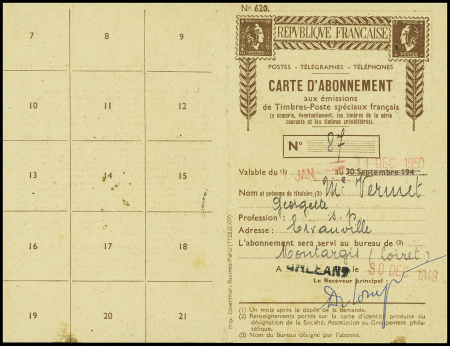 7 8 9
10 11 12
13 14 15
16 17 18
19 20 21
N° 620.
RÉPUBLIQUE FRANÇAISE
POSTES - TÉLÉGRAPHES - TÉLÉPHONES
CARTE D'ABONNEMENT
aux émissions
de Timbres-Poste spéciaux français
(y compris, éventuellement, les timbres de la série
courante et les timbres préoblitérés).
N° 87
JAN 31 DEC 1950
Valable du (1) au 30 Septembre 194
Nom et prénoms du titulaire, (2) Me Vermet
Georgette
Profession : s.p
Adresse : Ervauville
L'abonnement sera servi au bureau de (3)
Montargis (Loiret)
A ORLEANS le 30 DEC 1949
Le Receveur principal
(1) Un mois après le dépôt de la demande.
(2) Renseignements portés sur la carte d'identité produite ou
désignation de la Société, Association ou Groupement phila-
télique.
(3) Nom du bureau désigné par l'abonné.